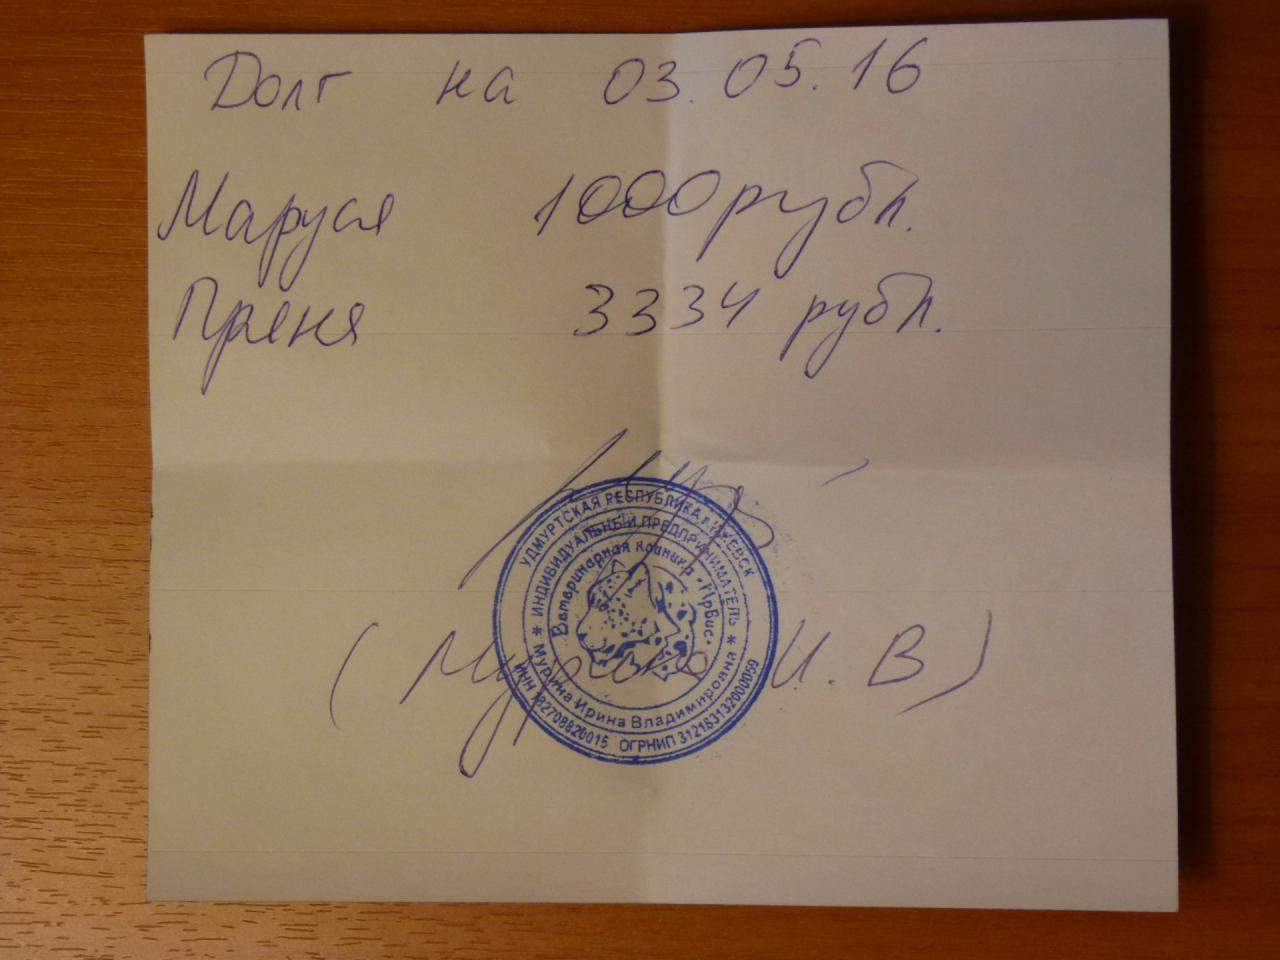 Долг на 03.05.16
Маруся 1000 рубл.
Преня 3334 рубл.
УДМУРТСКАЯ РЕСПУБЛИКА г. ИЖЕВСК
* ИНДИВИДУАЛЬНЫЙ ПРЕДПРИНИМАТЕЛЬ *
Ветеринарная клиника «Ирвис»
Мурина Ирина Владимировна
ИНН 182708820015 ОГРНИП 312183132000059
(Мурина И. В)